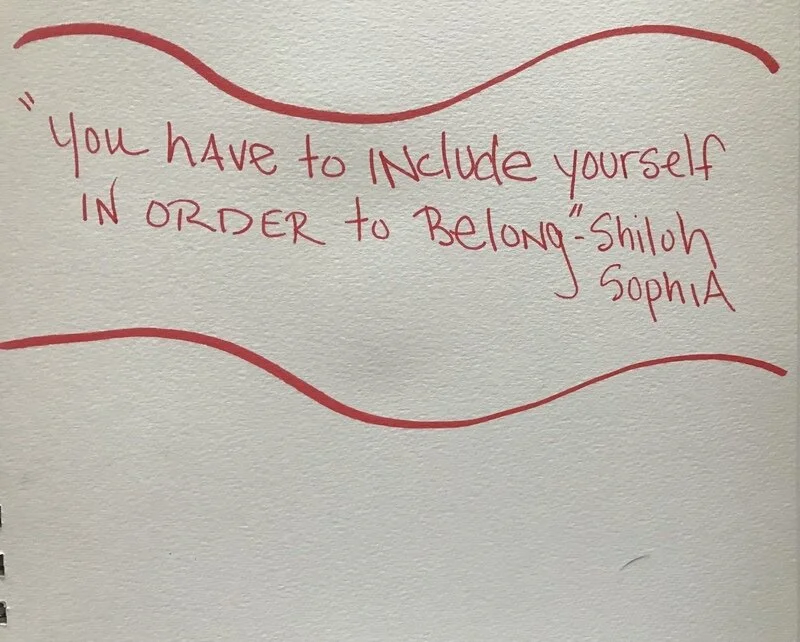 "You have to INclude yourself
IN ORDER to Belong"- Shiloh
SophiA